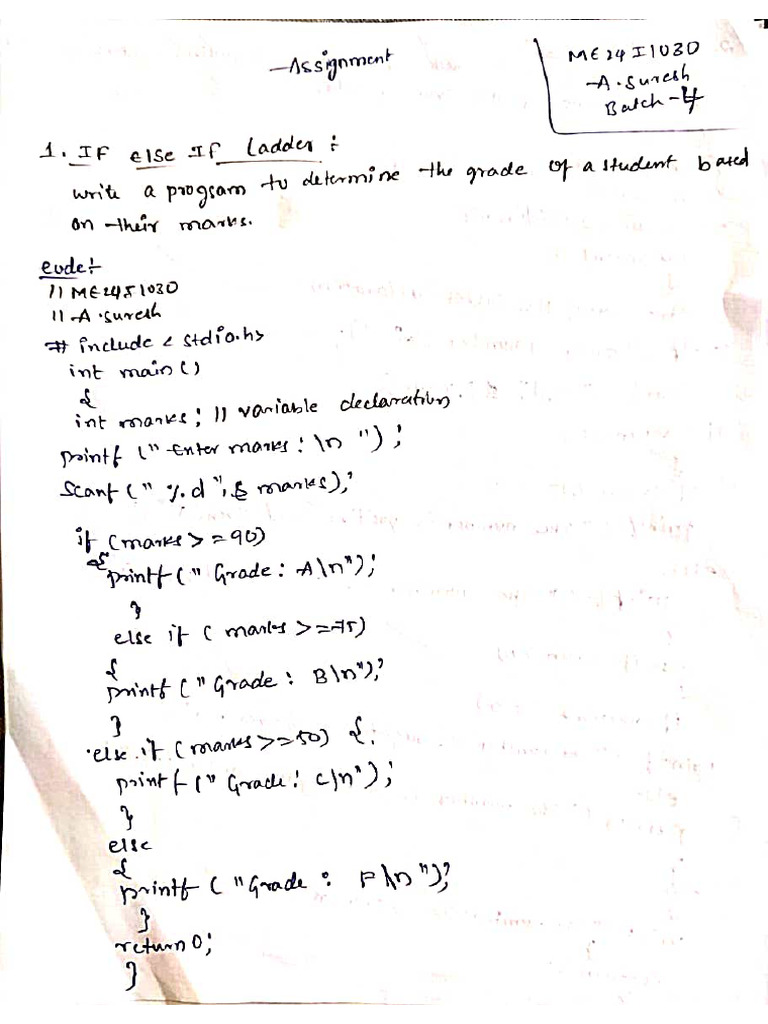 Assignment
ME24I1030
A.Suresh
Batch-4
1. IF else If Ladder:
write a program to determine the grade of a student based
on their marks.
code:-
// ME24I1030
// A.Suresh
# include < stdio.h>
int main()
{
int marks; // variable declaration
printf (" Enter marks: \n ");
Scanf (" %d ", & marks);
if (marks >=90)
{
printf (" Grade: A\n");
}
else if ( marks >=75)
{
printf (" Grade: B\n");
}
else if (marks >=50) {
printf (" Grade: C\n");
}
else
{
printf ("Grade : F\n");
}
return 0;
}